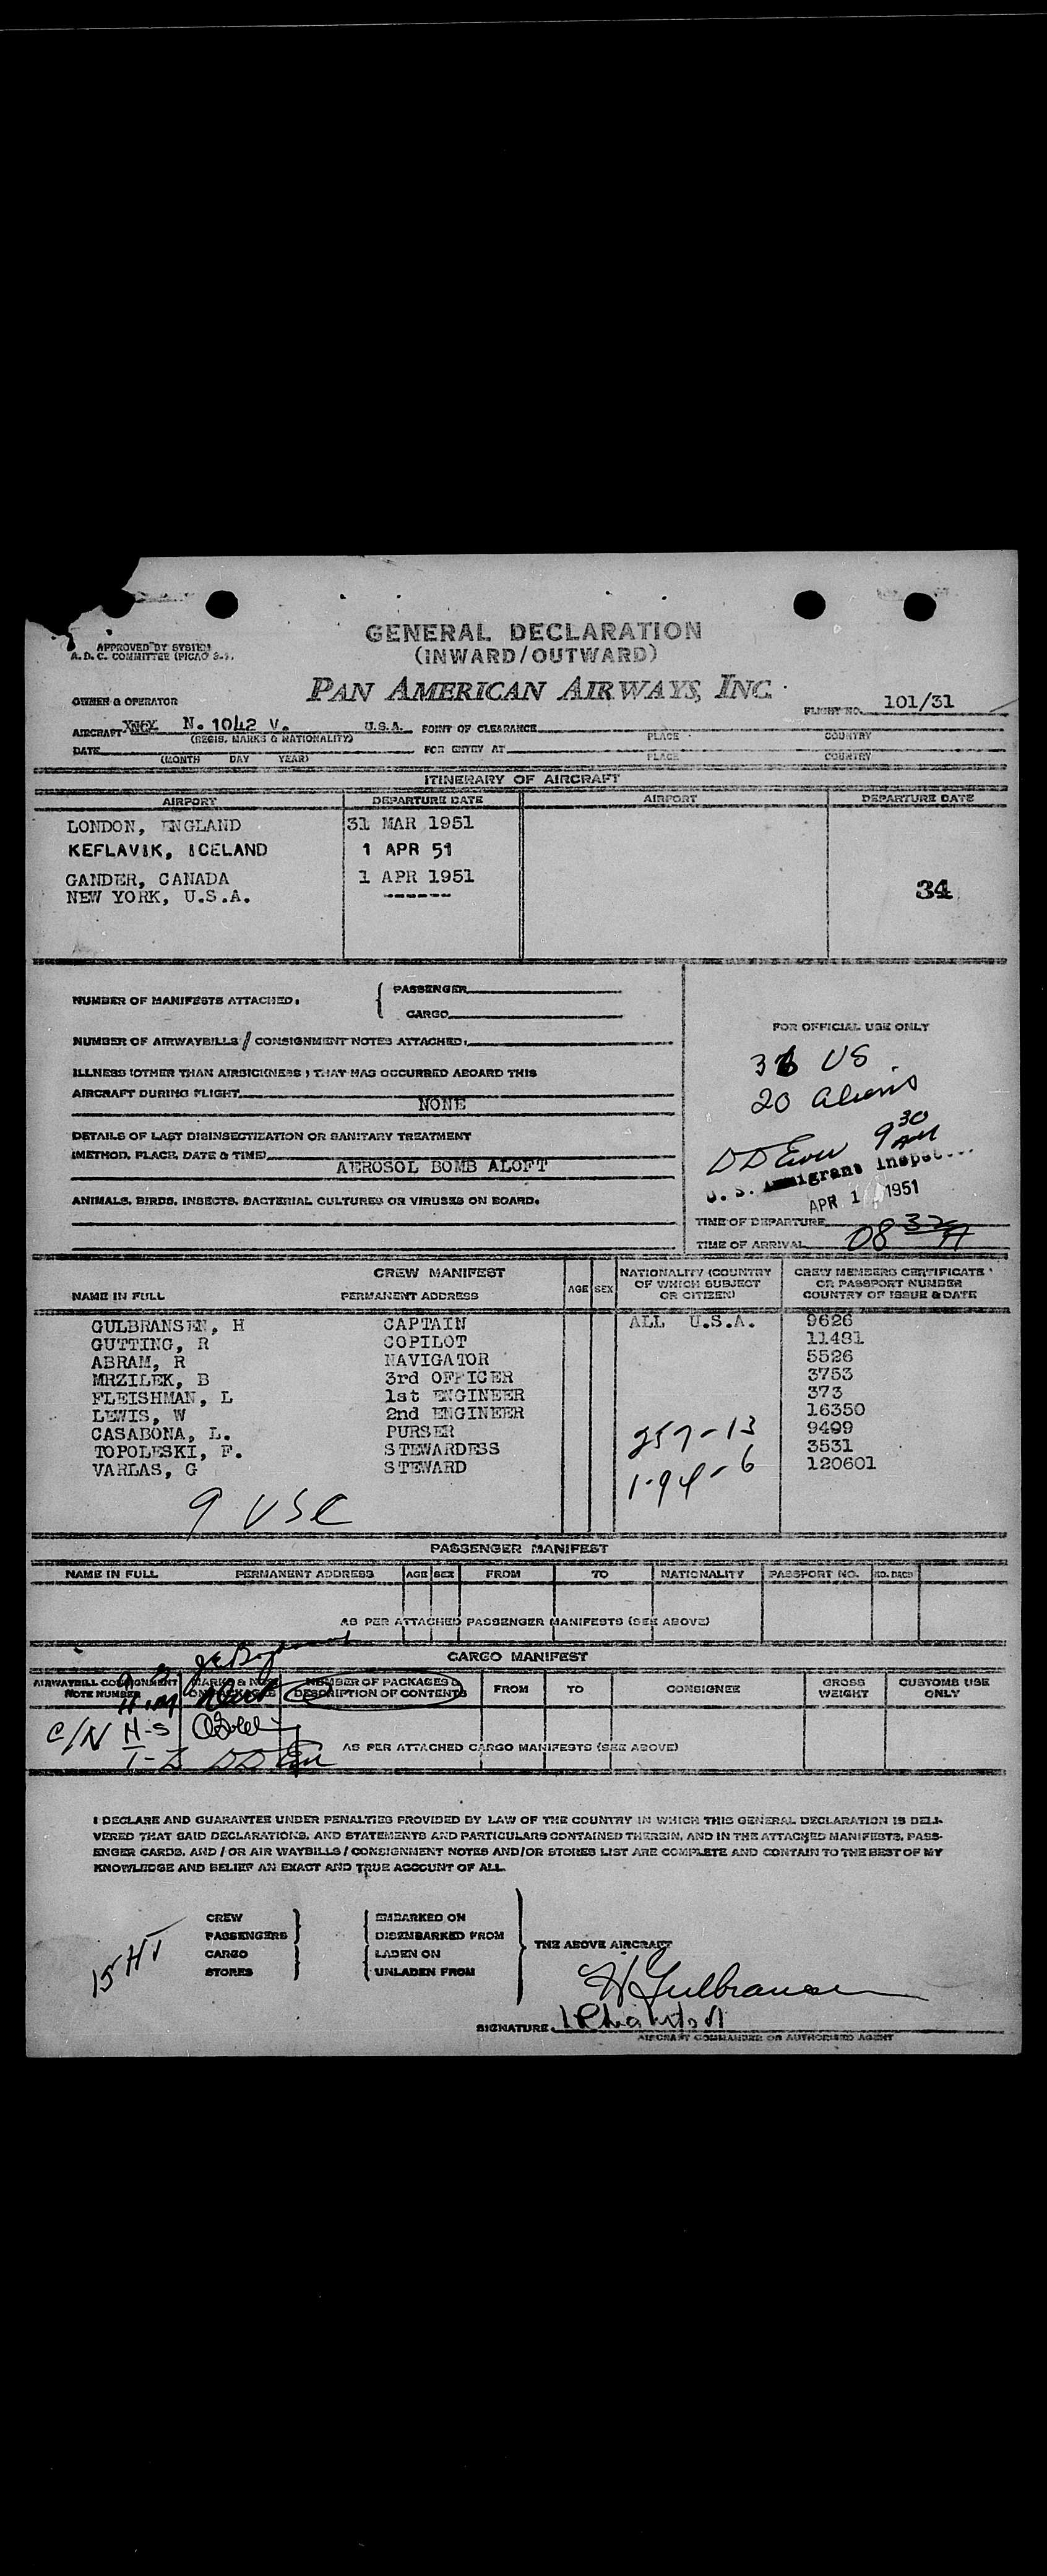 GENERAL DECLARATION
(INWARD/OUTWARD)
APPROVED BY SYSTEM
A. D. C. COMMITTEE (PICAO
PAN AMERICAN AIRWAYS, INC.
OWNER & OPERATOR
FLIGHT NO. 101/31
AIRCRAFT N. 1042 V. U.S.A. POINT OF CLEARANCE
(REGIS. MARKS & NATIONALITY) PLACE COUNTRY
DATE FOR ENTRY AT
(MONTH DAY YEAR) PLACE COUNTRY
ITINERARY OF AIRCRAFT
AIRPORT DEPARTURE DATE AIRPORT DEPARTURE DATE
LONDON, ENGLAND 31 MAR 1951
KEFLAVIK, ICELAND 1 APR 51
GANDER, CANADA 1 APR 1951
NEW YORK, U.S.A. ------
34
NUMBER OF MANIFESTS ATTACHED. { PASSENGER
CARGO
NUMBER OF AIRWAYBILLS / CONSIGNMENT NOTES ATTACHED.
ILLNESS (OTHER THAN AIRSICKNESS) THAT HAS OCCURRED ABOARD THIS
AIRCRAFT DURING FLIGHT
NONE
DETAILS OF LAST DISINSECTIZATION OR SANITARY TREATMENT
(METHOD, PLACE, DATE & TIME)
AEROSOL BOMB ALOFT
ANIMALS, BIRDS, INSECTS, BACTERIAL CULTURES OR VIRUSES ON BOARD.
FOR OFFICIAL USE ONLY
US
20 Aliens
9 30 AM
U. S. Immigrant Inspec
APR 1 1951
TIME OF DEPARTURE
TIME OF ARRIVAL 08 32 A
CREW MANIFEST
NAME IN FULL PERMANENT ADDRESS AGE SEX NATIONALITY (COUNTRY OF WHICH SUBJECT OR CITIZEN) CREW MEMBERS CERTIFICATE OR PASSPORT NUMBER COUNTRY OF ISSUE & DATE
GULBRANSEN, H CAPTAIN ALL U.S.A. 9626
GUTTING, R COPILOT 11481
ABRAM, R NAVIGATOR 5526
MRZILEK, B 3rd OFFICER 3753
FLEISHMAN, L 1st ENGINEER 373
LEWIS, W 2nd ENGINEER 16350
CASABONA, L. PURSER 9499
TOPOLESKI, F. STEWARDESS 3531
VARLAS, G STEWARD 120601
257-13
1-94-6
9 USC
PASSENGER MANIFEST
NAME IN FULL PERMANENT ADDRESS AGE SEX FROM TO NATIONALITY PASSPORT NO. NO. BAGS
AS PER ATTACHED PASSENGER MANIFESTS (SEE ABOVE)
CARGO MANIFEST
AIRWAYBILL CONSIGNMENT NOTE NUMBER MARKS & NOS. NUMBER OF PACKAGES & DESCRIPTION OF CONTENTS FROM TO CONSIGNEE GROSS WEIGHT CUSTOMS USE ONLY
C/N H-S
AS PER ATTACHED CARGO MANIFESTS (SEE ABOVE)
I DECLARE AND GUARANTEE UNDER PENALTIES PROVIDED BY LAW OF THE COUNTRY IN WHICH THIS GENERAL DECLARATION IS DELI-
VERED THAT SAID DECLARATIONS, AND STATEMENTS AND PARTICULARS CONTAINED THEREIN, AND IN THE ATTACHED MANIFESTS, PASS-
ENGER CARDS, AND / OR AIR WAYBILLS / CONSIGNMENT NOTES AND/OR STORES LIST ARE COMPLETE AND CONTAIN TO THE BEST OF MY
KNOWLEDGE AND BELIEF AN EXACT AND TRUE ACCOUNT OF ALL.
CREW EMBARKED ON
PASSENGERS DISEMBARKED FROM
CARGO LADEN ON
STORES UNLADEN FROM
THE ABOVE AIRCRAFT
15 HT
H Gulbransen
SIGNATURE
AIRCRAFT COMMANDER OR AUTHORISED AGENT